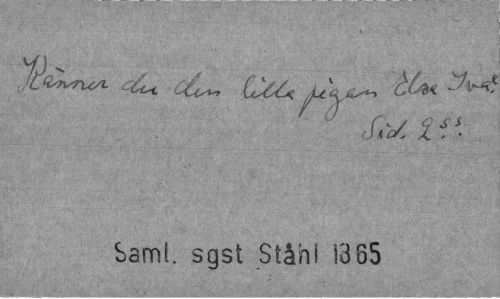 Känner du den lilla pigan Elsa Ivar.
Sid. 2 s.s.
Saml. sgst Ståhl 1365